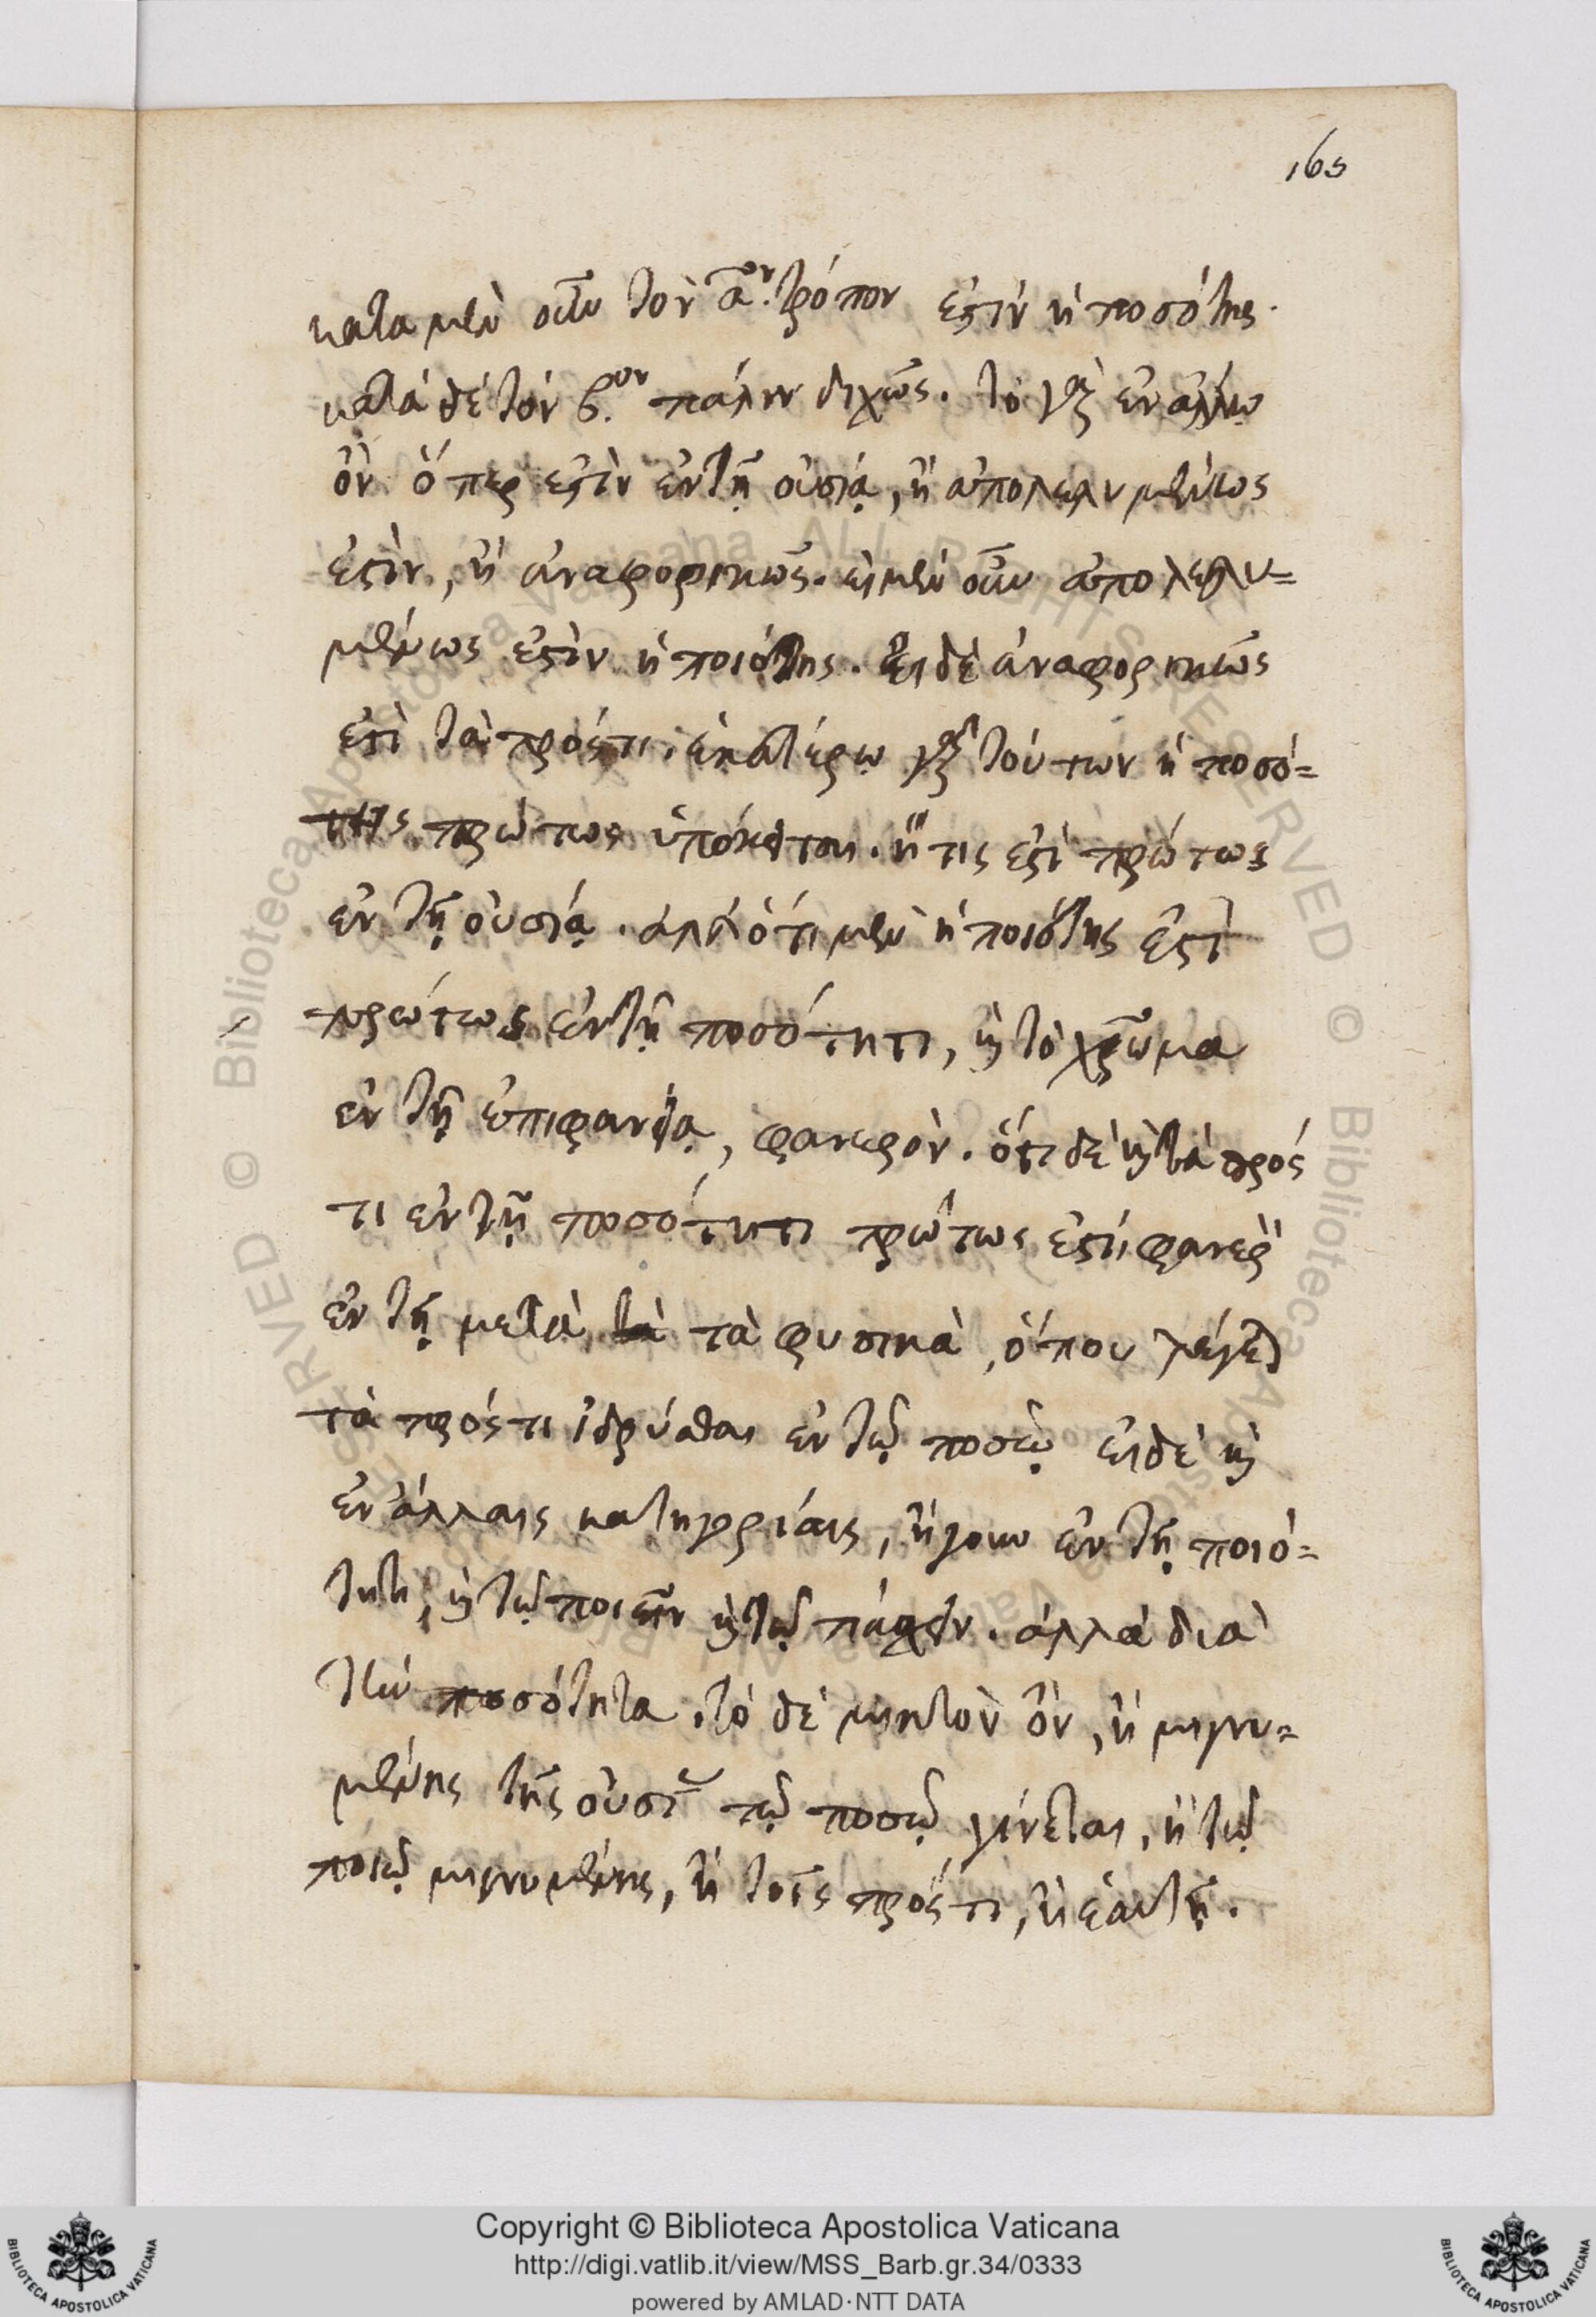 165
κατα μὲν οὖν τὸν α.ον τρόπον ἐστὶν ἡ ποσότης.
κατὰ δὲ τὸν β.ον πάλιν διχῶς. τὸ γὰρ ἐν ἄλλῳ
ὂν ὅπερ ἐστὶν ἐν τῇ οὐσίᾳ, ἢ ἀπολελυμένως
ἐστὶν, ἢ ἀναφορικῶς. εἰ μὲν οὖν ἀπολελυ=
μένως ἐστὶν ἡ ποιότης. εἰ δὲ ἀναφορικῶς
ἐστὶ τὰ πρόστι. ἑκατέρῳ γὰρ τούτων ἡ ποσό=
της πρώτως ὑπόκειται. ἥτις ἐστὶ πρώτως
ἐν τῇ οὐσίᾳ. ἀλλ' ὅτι μὲν ἡ ποιότης ἐστὶ
πρώτως ἐν τῇ ποσότητι, ϗ τὸ χρῶμα
ἐν τῇ ἐπιφανείᾳ, φανερὸν. ὅτι δὲ ϗ τὰ πρός
τι ἐν τῇ ποσότητι πρώτως ἐστί φανερὸ
ἐν τῇ μετὰ τὰ φυσικὰ, ὅπου λέγει
τὰ πρόστι ἱδρύσθαι ἐν τῷ ποσῷ εἰ δὲ ϗ
ἐν ἄλλαις κατηγορίαις, ἤγουν ἐν τῇ ποιό=
τητι, ϗ τῷ ποιεῖν ϗ τῷ πάσχειν. ἀλλὰ διὰ
τὴν ποσότητα. τὸ δὲ μικτὸν ὂν, ἢ μιγνυ=
μένης τῆς οὐσί τῷ ποσῷ γίνεται, ἢ τῷ
ποιῷ μιγνυμένης, ἢ τοῖς πρόστι, ἢ ἑαυτῇ.
Copyright © Biblioteca Apostolica Vaticana
http://digi.vatlib.it/view/MSS_Barb.gr.34/0333
powered by AMLAD·NTT DATA